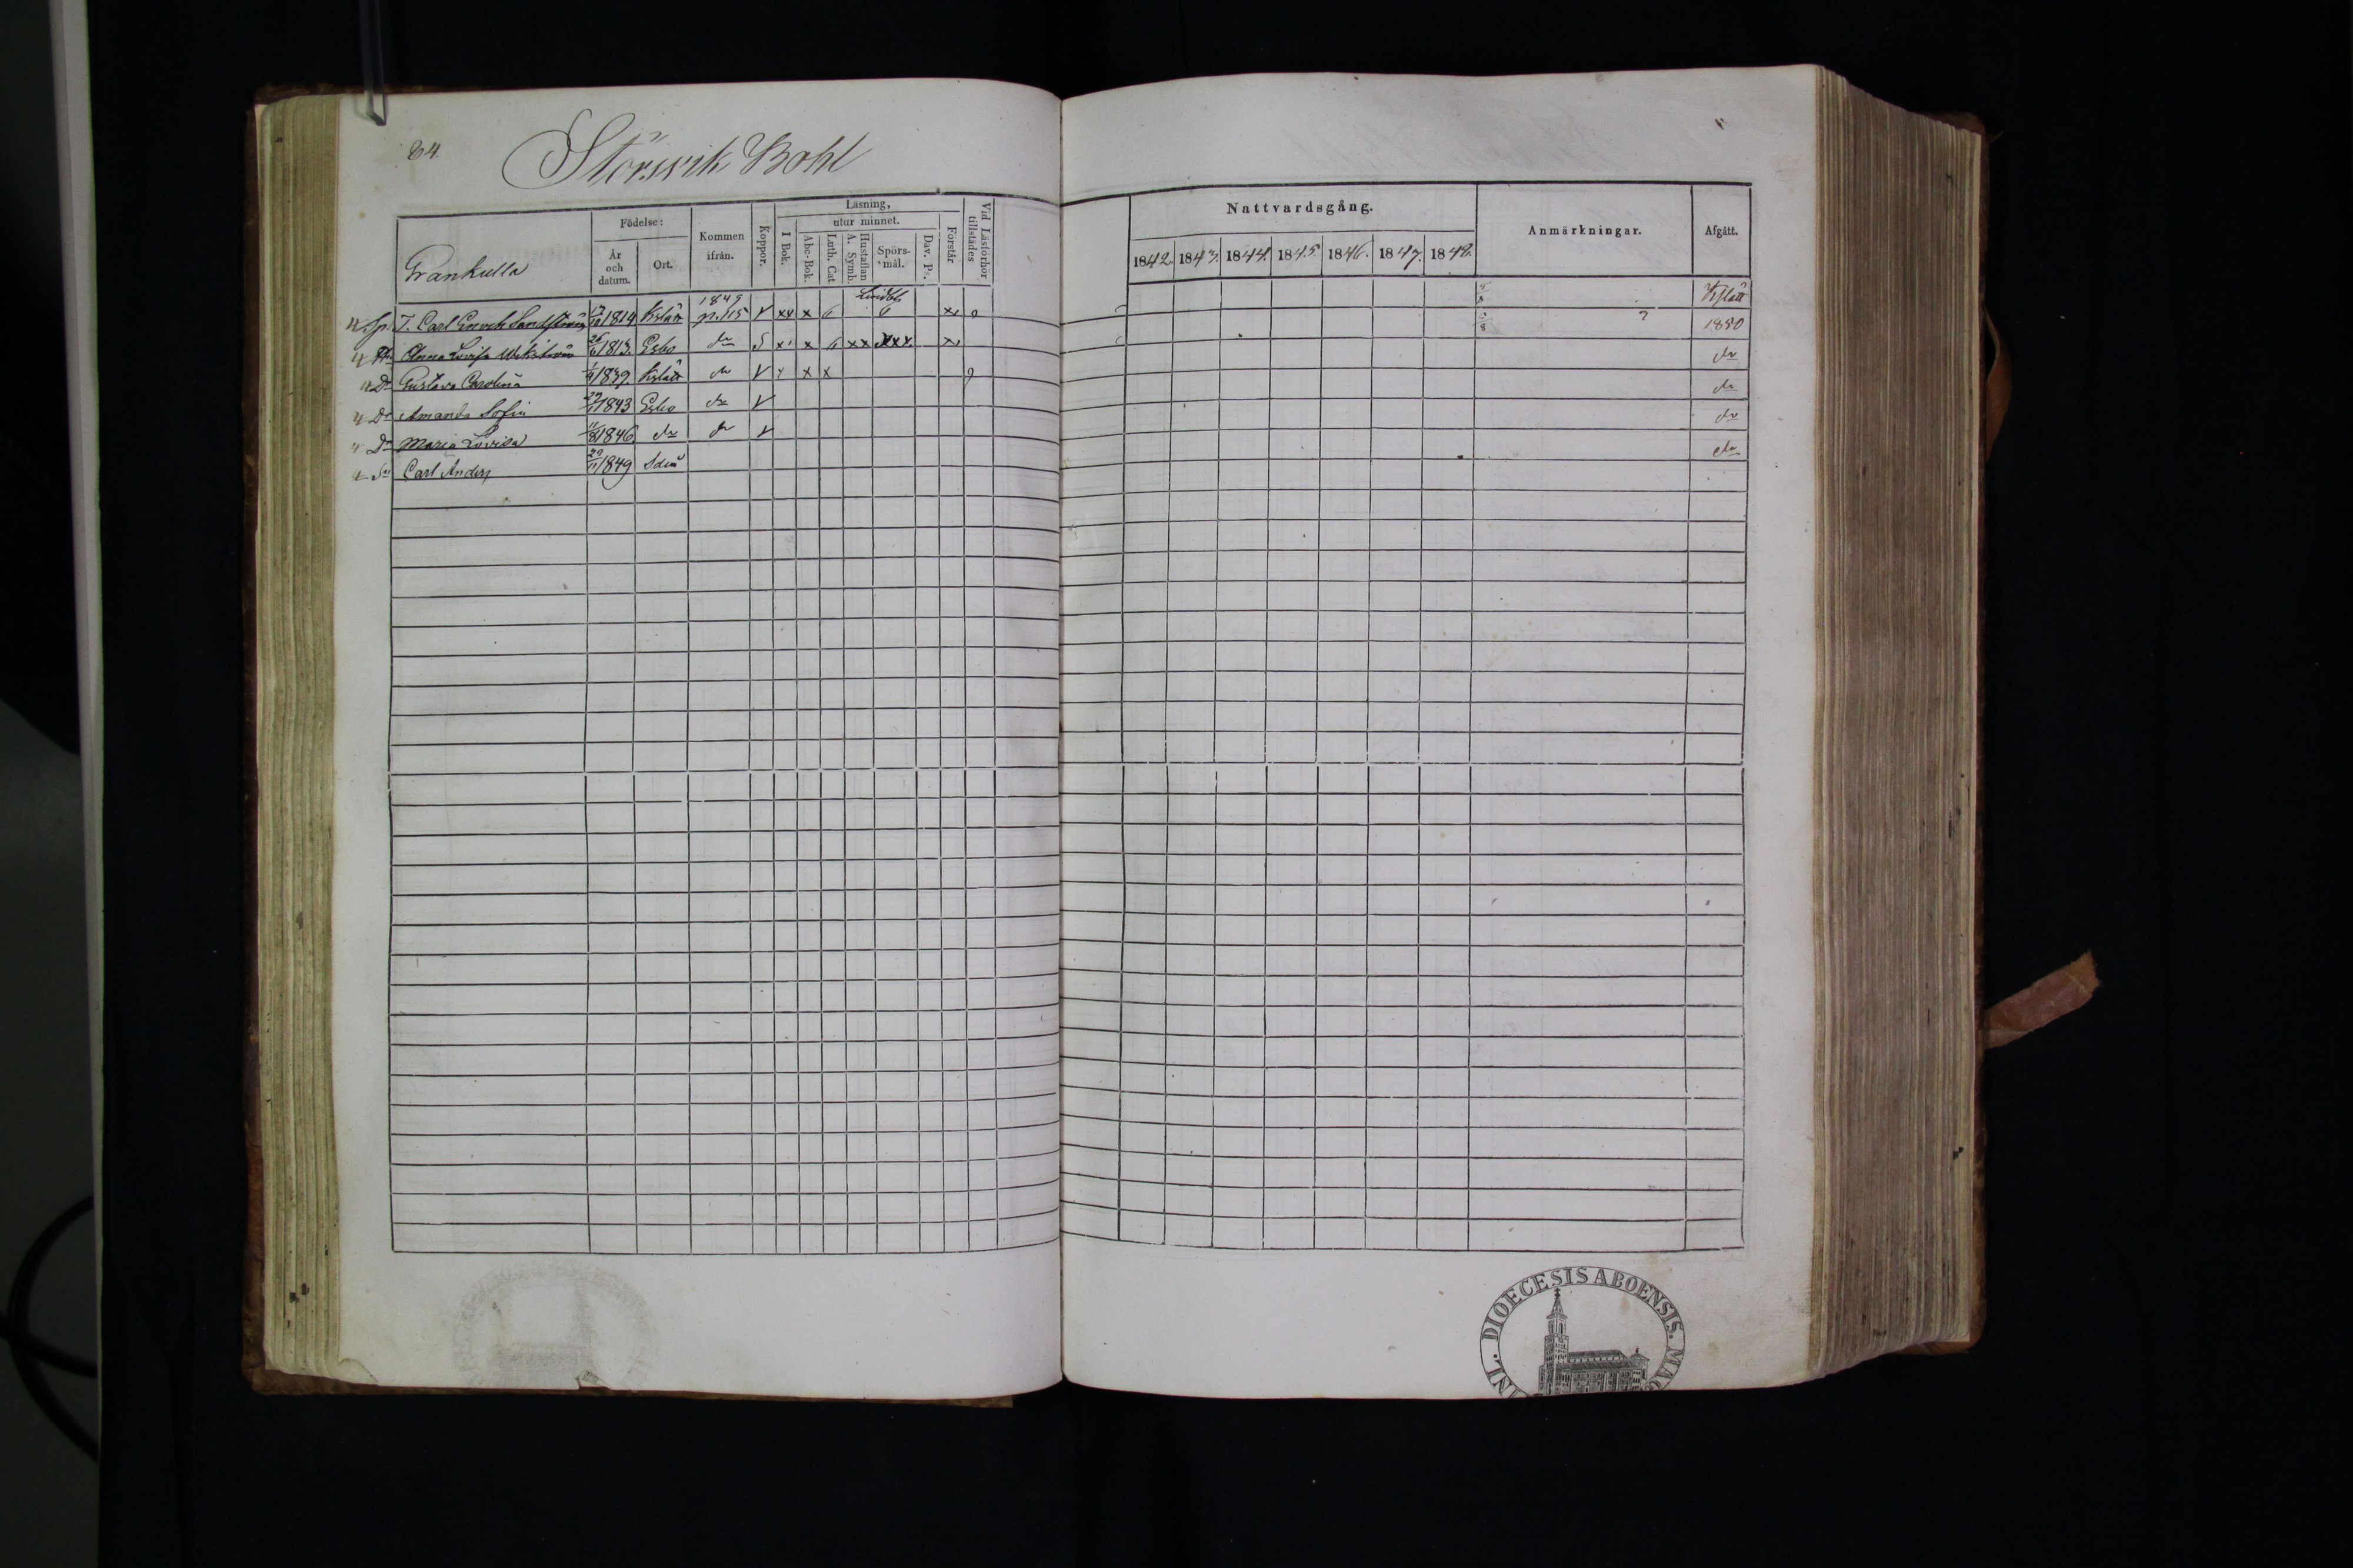 84.
Störsvik Bohl
Grankulla
Födelse:
År och datum.
Ort.
Kommen ifrån.
Koppor.
Läsning,
I Bok.
utur minnet.
Abc-Bok.
Luth. Cat.
Hustaflan A. Symb.
Spörs-mål.
Dav. Ps.
Förstår
Vid Läsförhör tillstädes
Nattvardsgång.
1842. 1843. 1844. 1845. 1846. 1847. 1848.
Anmärkningar.
Afgått.
1849
T. Carl Enoch Sandström 1814 Kslätt p. 115 V xx x 6 6 Kslätt
Anna Lovisa 26 1813. Esbo do S x x 6 xx xxx 1850
Do Gustava Carolina 1839 Kslätt do V x x x do
Do Amanda Sofia 1843 Esbo do V do
Do Maria Lovisa 1846 do do V do
Carl Anders 1849 do
DIOECESIS ABOENSIS. MAG